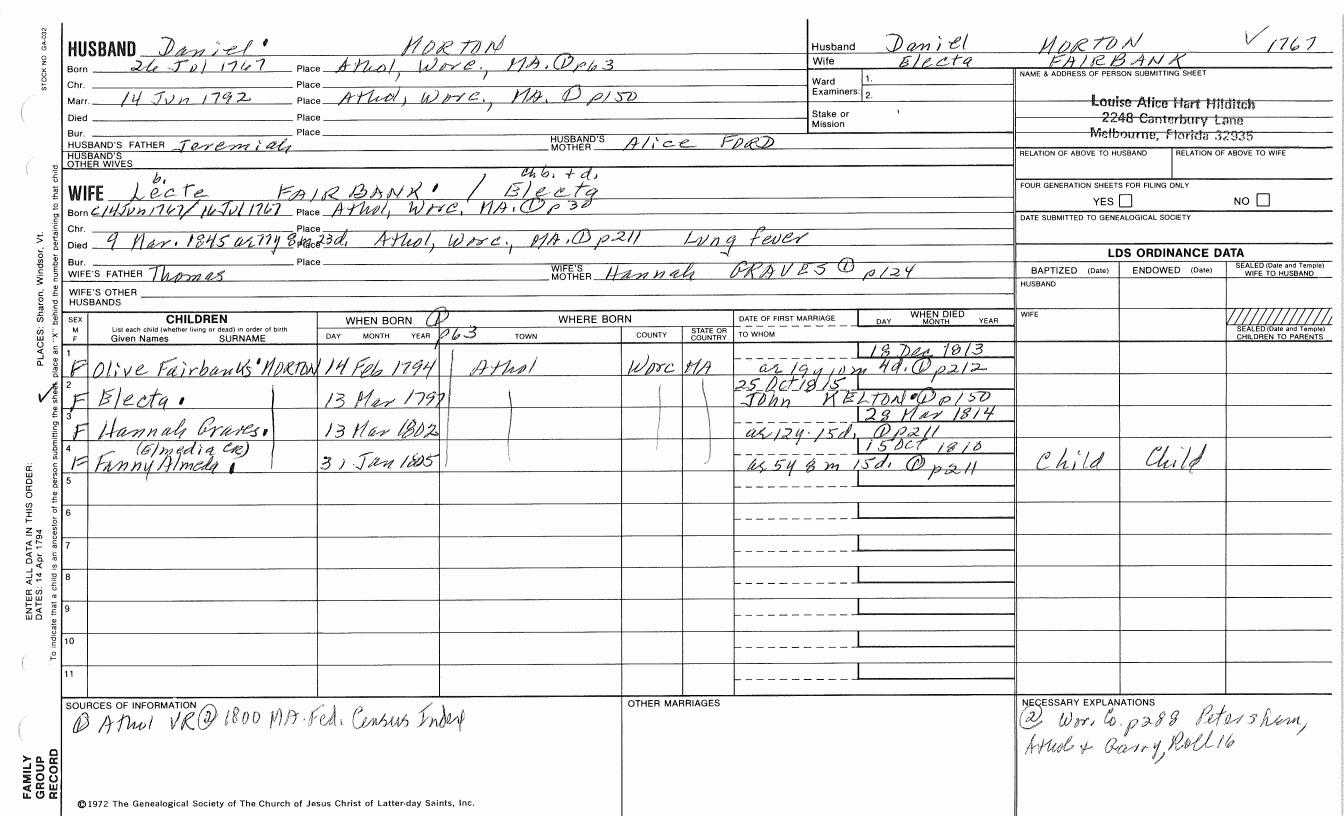 STOCK NO. GA-032
HUSBAND Daniel MORTON
Born 26 Jul 1767 Place Athol, Worc., MA. ① p63
Chr. Place
Marr. 14 Jun 1792 Place Athol, Worc., MA. ① p150
Died Place
Bur. Place
HUSBAND'S FATHER Jeremiah HUSBAND'S MOTHER Alice FORD
HUSBAND'S OTHER WIVES
b. ch. b. + d.
WIFE Lecte FAIRBANK / Electa
Born c14Jun1767/16Jul1767 Place Athol, Worc. MA. ① p30
Chr. Place
Died 9 Mar. 1845 Place Athol, Worc., MA. ① p211 Lung fever
Bur. Place
WIFE'S FATHER Thomas WIFE'S MOTHER Hannah GRAVES ① p124
WIFE'S OTHER HUSBANDS
Husband Daniel MORTON ✓ 1767
Wife Electa FAIRBANK
Ward Examiners: 1.
2.
Stake or Mission
NAME & ADDRESS OF PERSON SUBMITTING SHEET
Louise Alice Hart Hilditch
2248 Canterbury Lane
Melbourne, Florida 32935
RELATION OF ABOVE TO HUSBAND RELATION OF ABOVE TO WIFE
FOUR GENERATION SHEETS FOR FILING ONLY
YES NO
DATE SUBMITTED TO GENEALOGICAL SOCIETY
LDS ORDINANCE DATA
BAPTIZED (Date) ENDOWED (Date) SEALED (Date and Temple) WIFE TO HUSBAND
HUSBAND
WIFE
SEALED (Date and Temple) CHILDREN TO PARENTS
SEX M F CHILDREN WHEN BORN ① WHERE BORN DATE OF FIRST MARRIAGE WHEN DIED
List each child (whether living or dead) in order of birth
Given Names SURNAME DAY MONTH YEAR p63 TOWN COUNTY STATE OR COUNTRY TO WHOM DAY MONTH YEAR
1 18 Dec 1813
F Olive Fairbanks MORTON 14 Feb 1794 Athol Worc MA ae 19y 10m 4d. ① p212
2 25 Oct 1815
F Electa 13 Mar 1797 John KELTON ① p150
3 28 Mar 1814
F Hannah Graves 13 Mar 1802 ae 12y. 15d. ① p211
4 (Elmedia CR) 15 Oct 1810
F Fanny Almeda 31 Jan 1805 ae 5y 8m 15d. ① p211 Child Child
5
6
7
8
9
10
11
SOURCES OF INFORMATION
① Athol VR ② 1800 MA. Fed. Census Index
OTHER MARRIAGES
NECESSARY EXPLANATIONS
② Wor. Co. p288 Petersham,
Athol + Garry, Roll 16
©1972 The Genealogical Society of The Church of Jesus Christ of Latter-day Saints, Inc.
FAMILY GROUP RECORD
ENTER ALL DATA IN THIS ORDER:
DATES: 14 Apr 1794
PLACES: Sharon, Windsor, Vt.
To indicate that a child is an ancestor of the person submitting the sheet, place an "X" behind the number pertaining to that child.